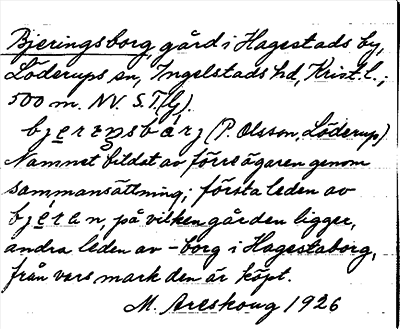 Bjeringsborg, gård i Hagestads by,
Löderups sn, Ingelstads hd, Krist. l.;
500 m. NV. S.T.(G).
(P. Olsson, Löderup)
Namnet bildat av förre ägaren genom
sammansättning; första leden av
på vilken gården ligger,
andra leden av -borg i Hagestaborg,
från vars mark den är köpt.
M. Areskoug 1926